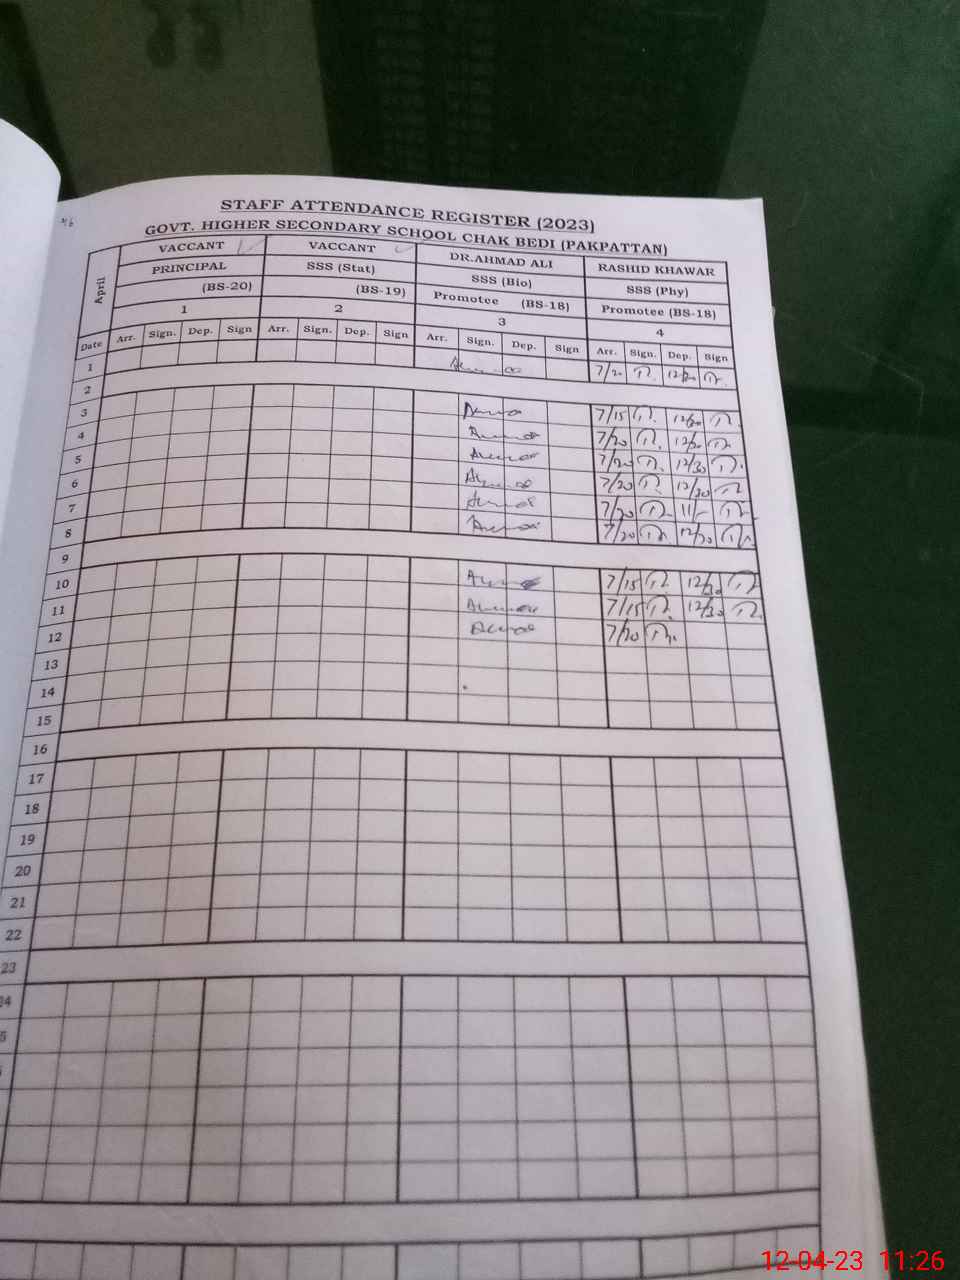 STAFF ATTENDANCE REGISTER (2023)
GOVT. HIGHER SECONDARY SCHOOL CHAK BEDI (PAKPATTAN)
April
VACCANT VACCANT DR.AHMAD ALI RASHID KHAWAR
PRINCIPAL SSS (Stat) SSS (Bio) SSS (Phy)
(BS-20) (BS-19) Promotee (BS-18) Promotee (BS-18)
1 2 3 4
Date Arr. Sign. Dep. Sign Arr. Sign. Dep. Sign Arr. Sign. Dep. Sign Arr. Sign. Dep. Sign
1 7/20 12/30
2
3 7/15 12/30
4 7/20 12/30
5 7/20 12/30
6 7/20 12/30
7 7/20 11/-
8 7/20 12/30
9
10 7/15 12/30
11 7/15 12/30
12 7/20
13
14
15
16
17
18
19
20
21
22
23
12-04-23 11:26